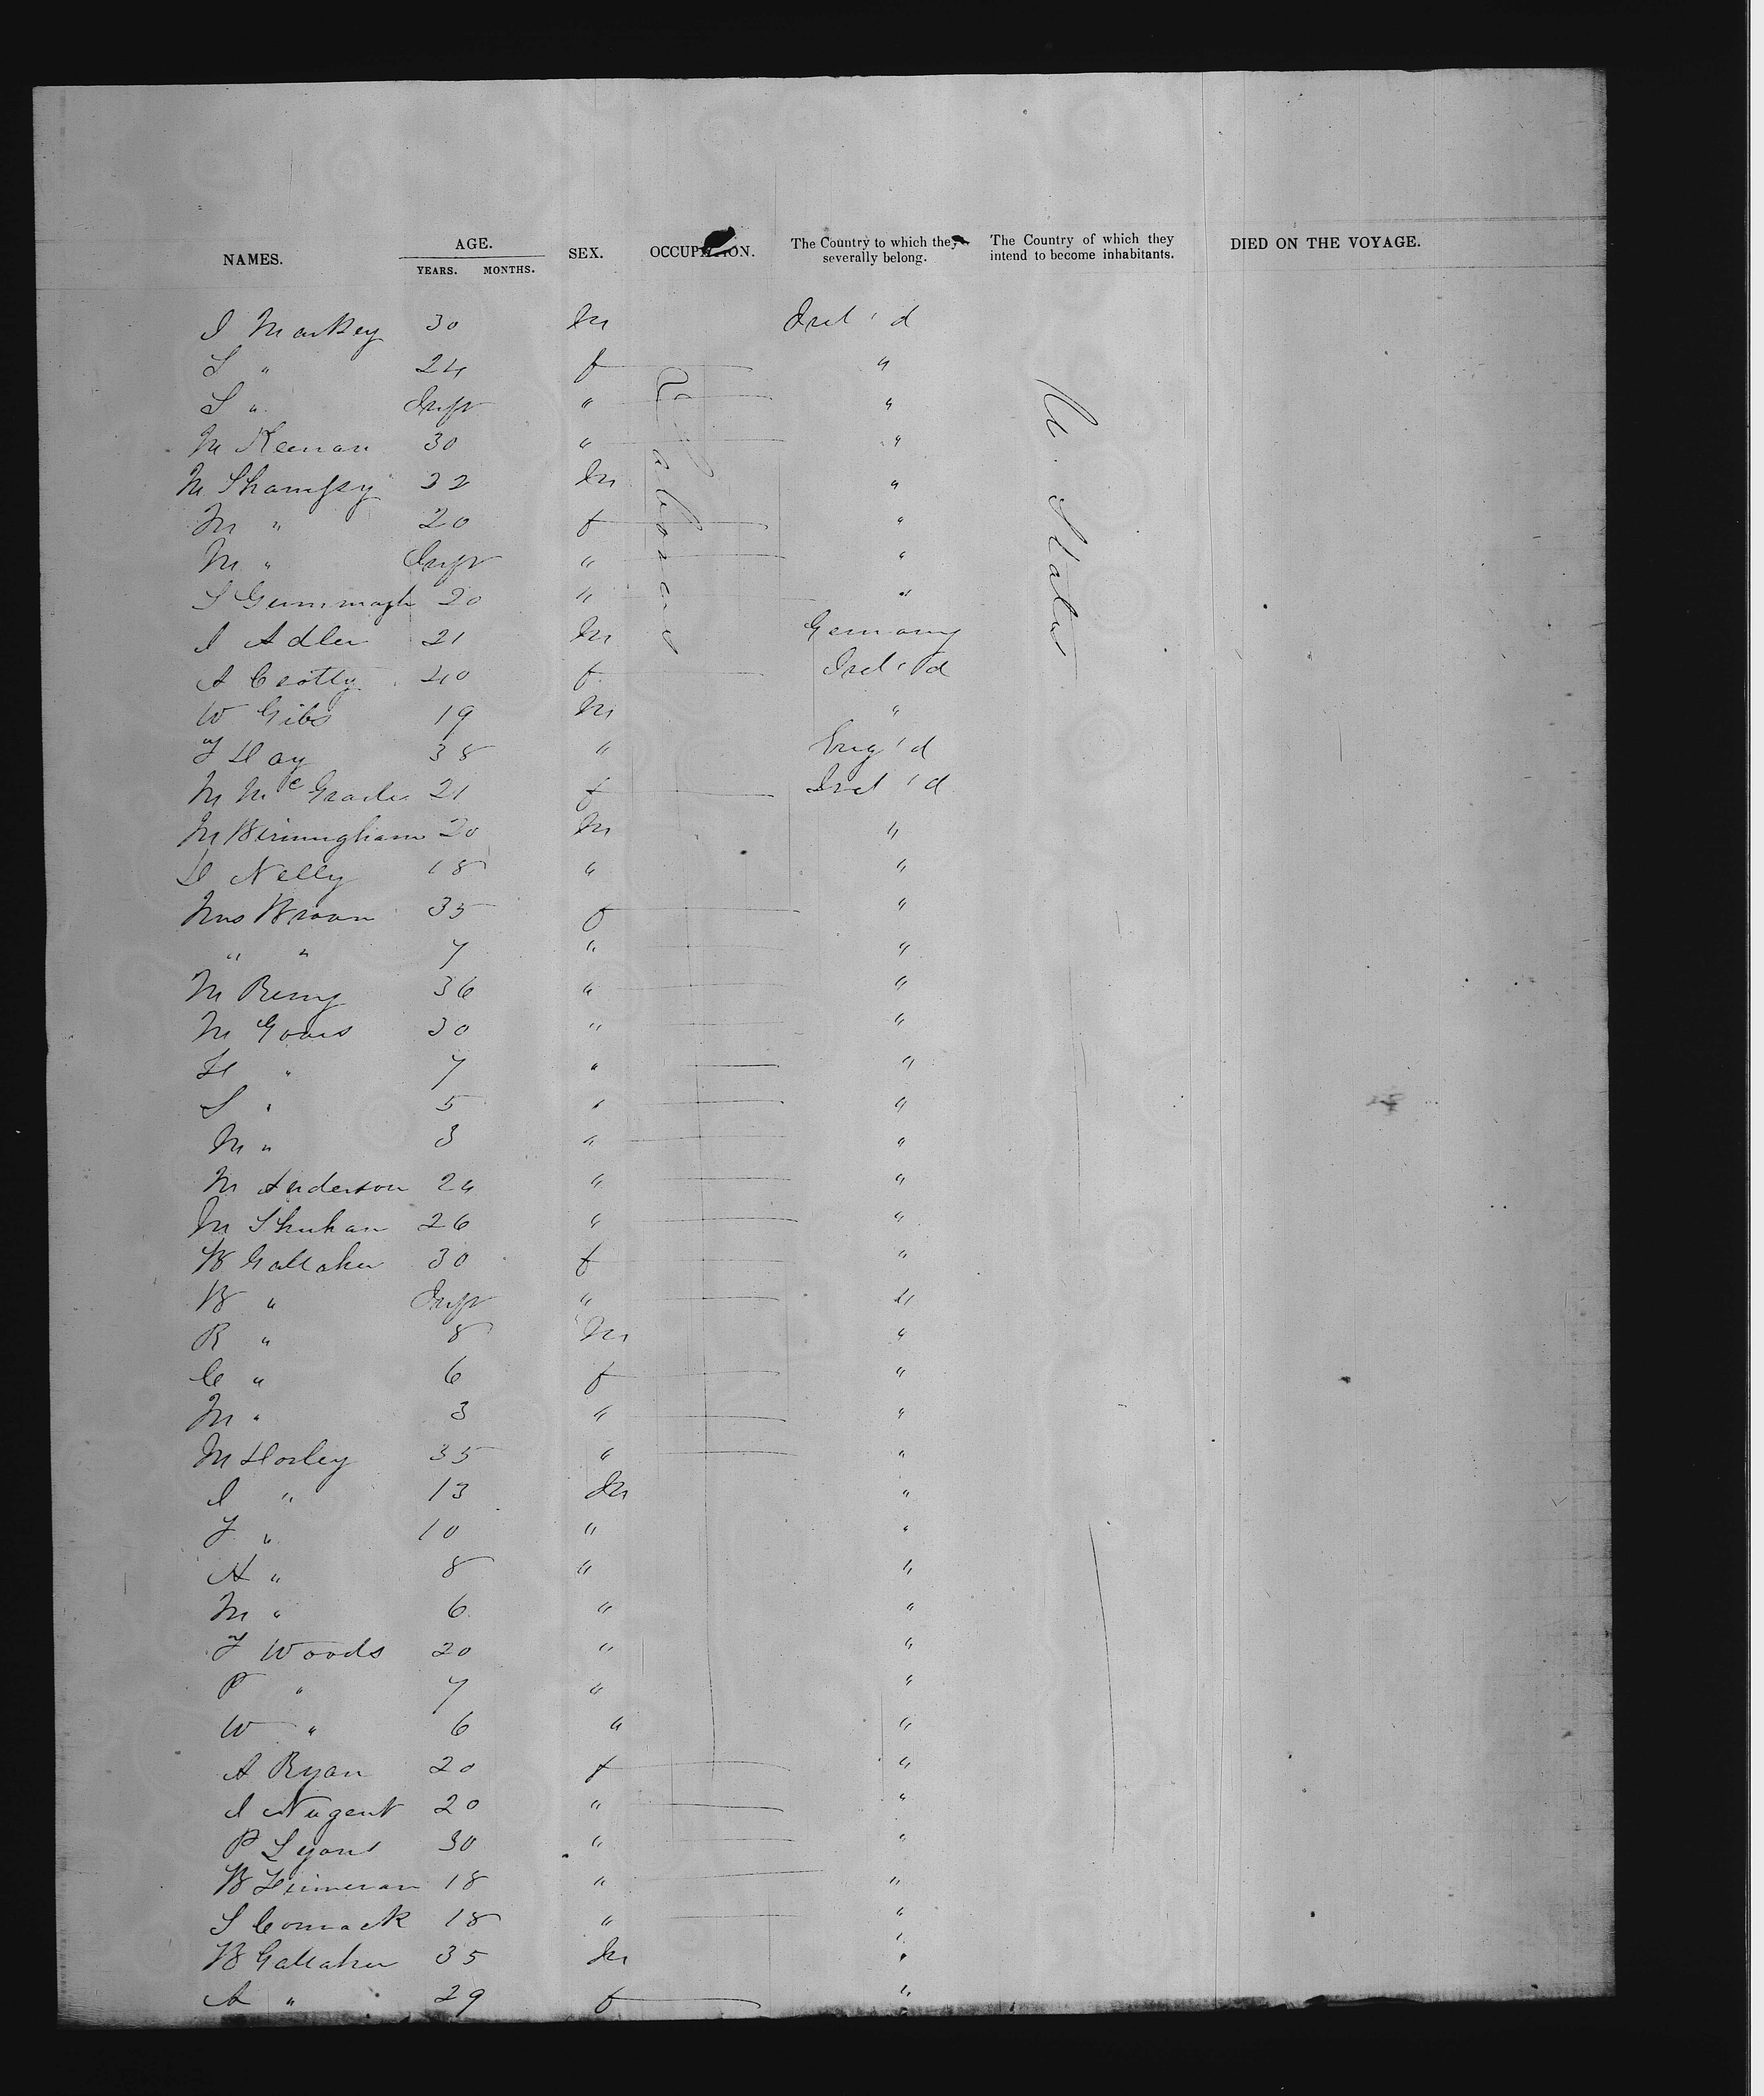 NAMES. AGE. SEX. OCCUPATION. The Country to which they severally belong. The Country of which they intend to become inhabitants. DIED ON THE VOYAGE.
YEARS. MONTHS.
Laborers
U. States
J Markey 30 M Irel'd
S " 24 f "
S " Inft " "
M Keenan 30 " "
M 32 M "
M " 20 f "
M " Inft " "
S 20 " "
J Adler 21 M Germany
A Crotty 40 f Irel'd
W Gibs 19 M "
J Hay 38 " Eng'd
M McGrade 21 f Irel'd
M Birmingham 20 M "
H Nelly 18 " "
Mrs Brown 35 f "
" " 7 " "
M 36 " "
M 30 " "
H " 7 " "
S " 5 " "
M " 3 " "
M Anderson 24 " "
M Shuhan 26 " "
B Gallaher 30 f "
B " Inft " "
R " 8 M "
C " 6 f "
M " 3 " "
M Horley 35 " "
J " 13 M "
J " 10 " "
A " 8 " "
M " 6 " "
J Woods 20 " "
P " 7 " "
W " 6 " "
A Ryan 20 f "
J Nugent 20 " "
P Lyons 30 " "
B 18 " "
S Cormack 18 " "
B Gallaher 35 M "
A " 29 f "